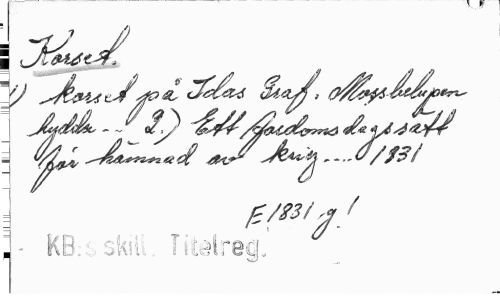 Korset.
1) Korset på Idas Graf. Mossbelupen
hydda -- 2.) Ett fordomsdagssätt
för hämnad av krig .... 1831
E 1831 g!
KB:s skill. Titelreg.